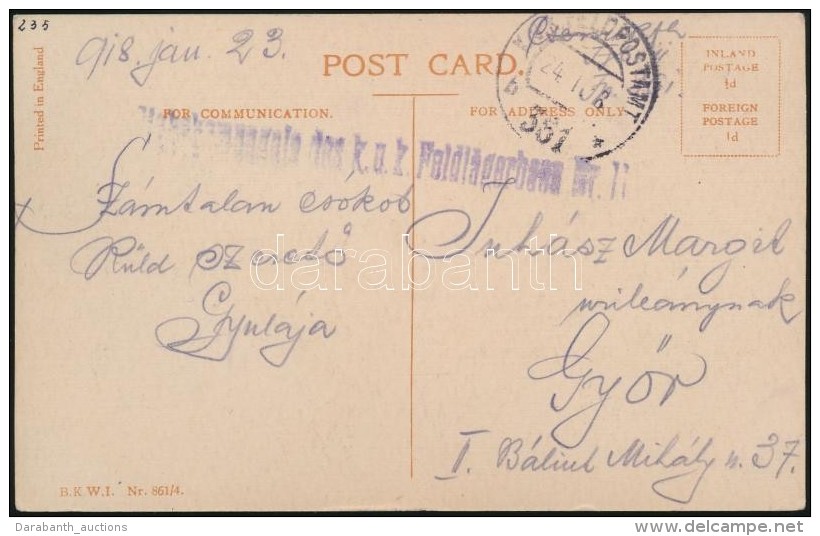 235
918. jan. 23.
Printed in England
POST CARD.
FOR COMMUNICATION.
FOR ADDRESS ONLY.
INLAND
POSTAGE
½d
FOREIGN
POSTAGE
1d
FELDPOSTAMT
b
24. I. 18
381
des k.u.k. Feldlägerhaus Nr. 11
Számtalan csokot
Küld szerető
Gyulája
Juhász Margit
urileánynak
Győr
I. Bálint Mihály u. 37.
darabanth
B.K.W.I. Nr. 861/4.
Darabanth_auctions
www.delcampe.net